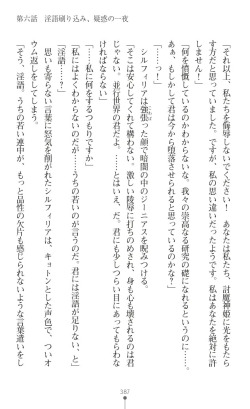 第六話　淫語刷り込み、疑惑の一夜
それ以上、私たちを侮辱しないでください！　あなたは私たち、討魔神姫に光をもたら
す方だと思っていましたのに。どうやら、私の思い違いだったようです。私はあなたを絶対に許
「何を憤慨しているのかわからないな。我々の崇高なる研究の礎になれるというのに……。
もしかして君は今から堕とさせられると思っているのかな？」
「……っ！」
シルフィリアは強張った顔で暗闇の中のジーニアスを睨みつける。
「そこは安心してくれて構わない。激しい陵辱に打ちのめされ、身も心も壊されなけれ
ばならない、並行世界の君だよ。……とはいえ、だ。君にも少しつらい目にあってもらわな
ければな」
「……私に何をするつもりですか」
「私にはよくわからないのだが……うちの若いのが言うのだ。君には淫語が足りない、と」
「淫語……？」
思いも寄らない言葉に怒気を削がれたシルフィリアは、キョトンとした声色で、ついオ
ウム返しをしてしまう。
「そう、淫語。うちの若い連中が、もっと品性の欠片も感じられないような言葉遣いをし
387